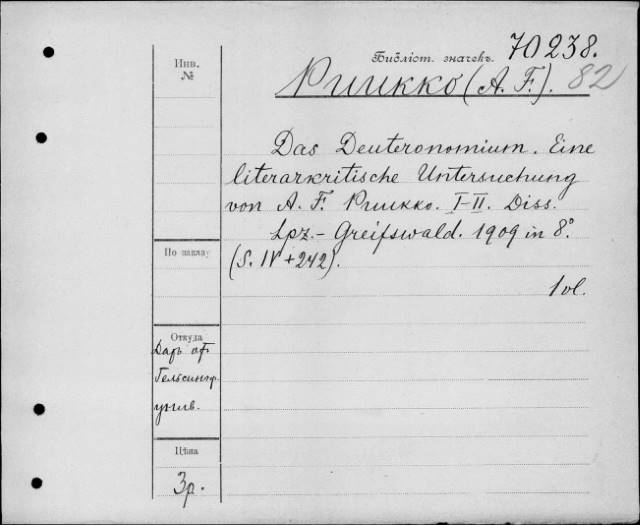 Инв. №
Библіот. значекъ. 70238.
Puukko (A. F.). 82
Das Deuteronomium. Eine
literarkritische Untersuchung
von A. F. Puukko. I-II. Diss.
Lpz.- Greifswald. 1909 in 8°
(S. IV + 242).
1 vl.
По закладу
Откуда
Даръ от
Гельсингф.
унив.
Цѣна
3р.